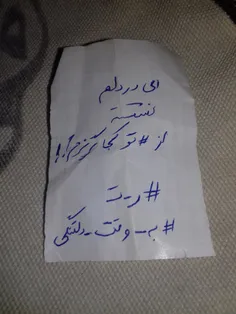 ای در دلم
نشسته
از #تو کجا گریزم؟!
#ر-ت
#به-وقت-دلتنگی